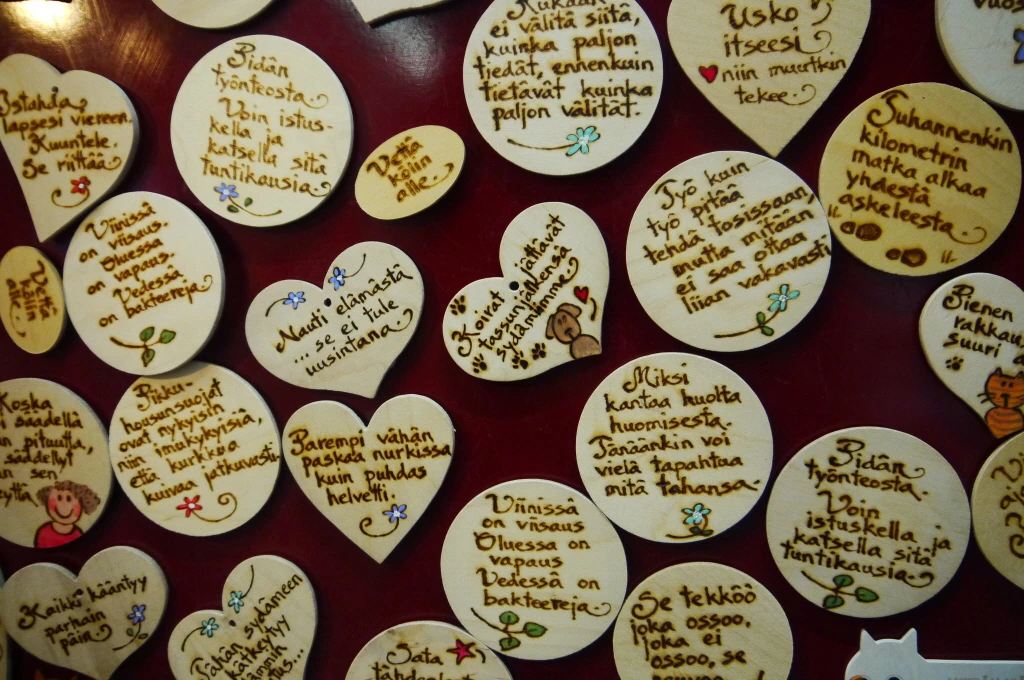 Kukaan
ei välitä siitä,
kuinka paljon
tiedät, ennenkuin
tietävät kuinka
paljon välität.
Usko
itseesi
niin muutkin
tekee.
Istahda
lapsesi viereen.
Kuuntele.
Se riittää
Pidän
työnteosta.
Voin istus-
kella ja
katsella sitä
tuntikausia.
Vettä
köliin
alle.
Suhannenkin
kilometrin
matka alkaa
yhdestä
askeleesta.
Työ kuin
työ pitää
tehdä tosissaan,
mutta mitään
ei saa ottaa
liian vakavasti
Viinissä
on viisaus
Oluessa
on vapaus
Vedessä
on bakteereja
Nauti elämästä
...se ei tule
uusintana.
Koirat jättävät
tassunjälkensä
sydämiimme.
Pienen
suuri
Koska
säädellä
pituutta,
säädellyt
sen
Pikku-
housunsuojat
ovat nykyisin
niin imukykyisiä,
että kurkkua
kuivaa jatkuvasti.
Parempi vähän
paskaa nurkissa
kuin puhdas
helvetti.
Miksi
kantaa huolta
huomisesta.
Tänäänkin voi
vielä tapahtua
mitä tahansa.
Viinissä
on viisaus
Oluessa on
vapaus
Vedessä on
bakteereja
Pidän
työnteosta.
Voin
istuskella ja
katsella sitä
tuntikausia.
Kaikki kääntyy
parhain
päin
Tähän sydämeen
kätkeytyy
Sata
Se tekköö
joka ossoo,
joka ei
ossoo, se